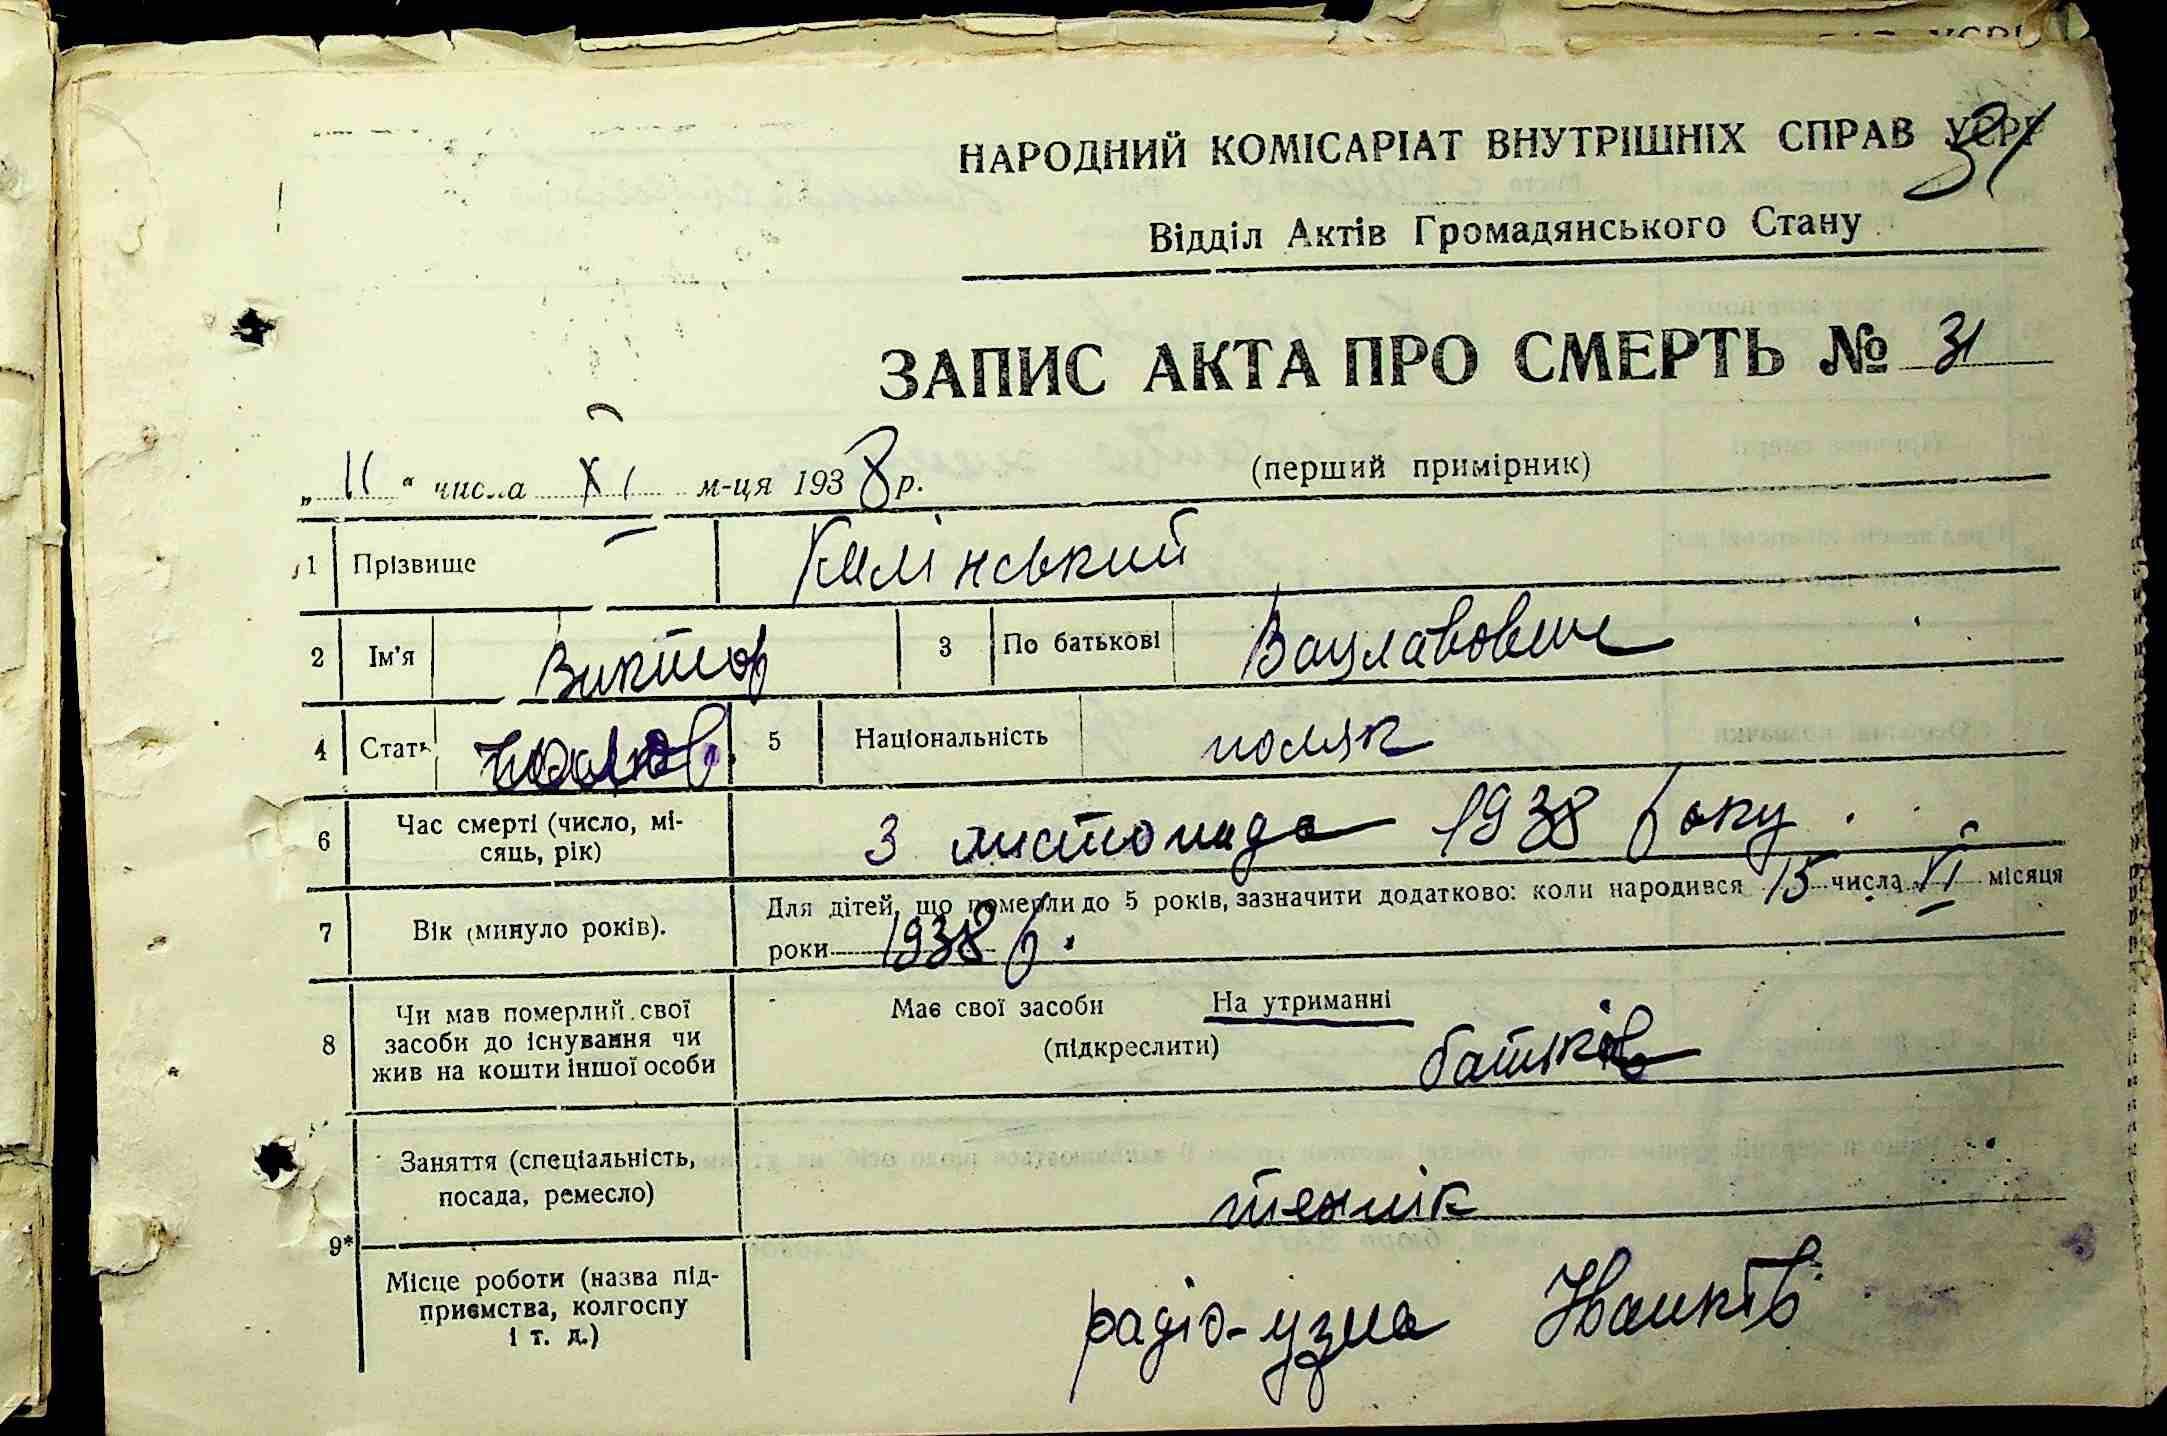 НАРОДНИЙ КОМІСАРІАТ ВНУТРІШНІХ СПРАВ УСРР
31
Відділ Актів Громадянського Стану
ЗАПИС АКТА ПРО СМЕРТЬ № 31
„ 11 “ числа XI м-ця 1938 р. (перший примірник)
1 Прізвище Калінський
2 Ім'я Виктор 3 По батькові Вацлавович
4 Стать 5 Національність поляк
6 Час смерті (число, мі-
сяць, рік) 3 листопада 1938 року.
7 Вік (минуло років). Для дітей, що померли до 5 років, зазначити додатково: коли народився 15 числа VI місяця
роки 1938 р.
8 Чи мав померлий свої
засоби до існування чи
жив на кошти іншої особи
Має свої засоби На утриманні
(підкреслити) батьків
9* Заняття (спеціальність,
посада, ремесло) технік
Місце роботи (назва під-
приємства, колгоспу
і т. д.)
радіо-узла Іванків